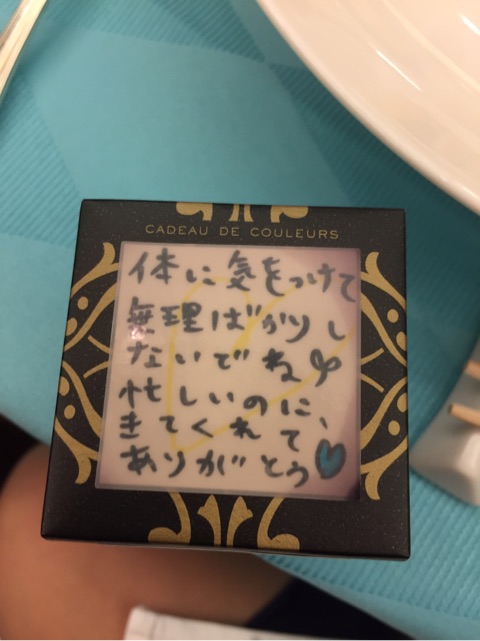 CADEAU DE COULEURS
体に気をつけて
無理ばかりし
ないでね
忙しいのに、
きてくれて
ありがとう